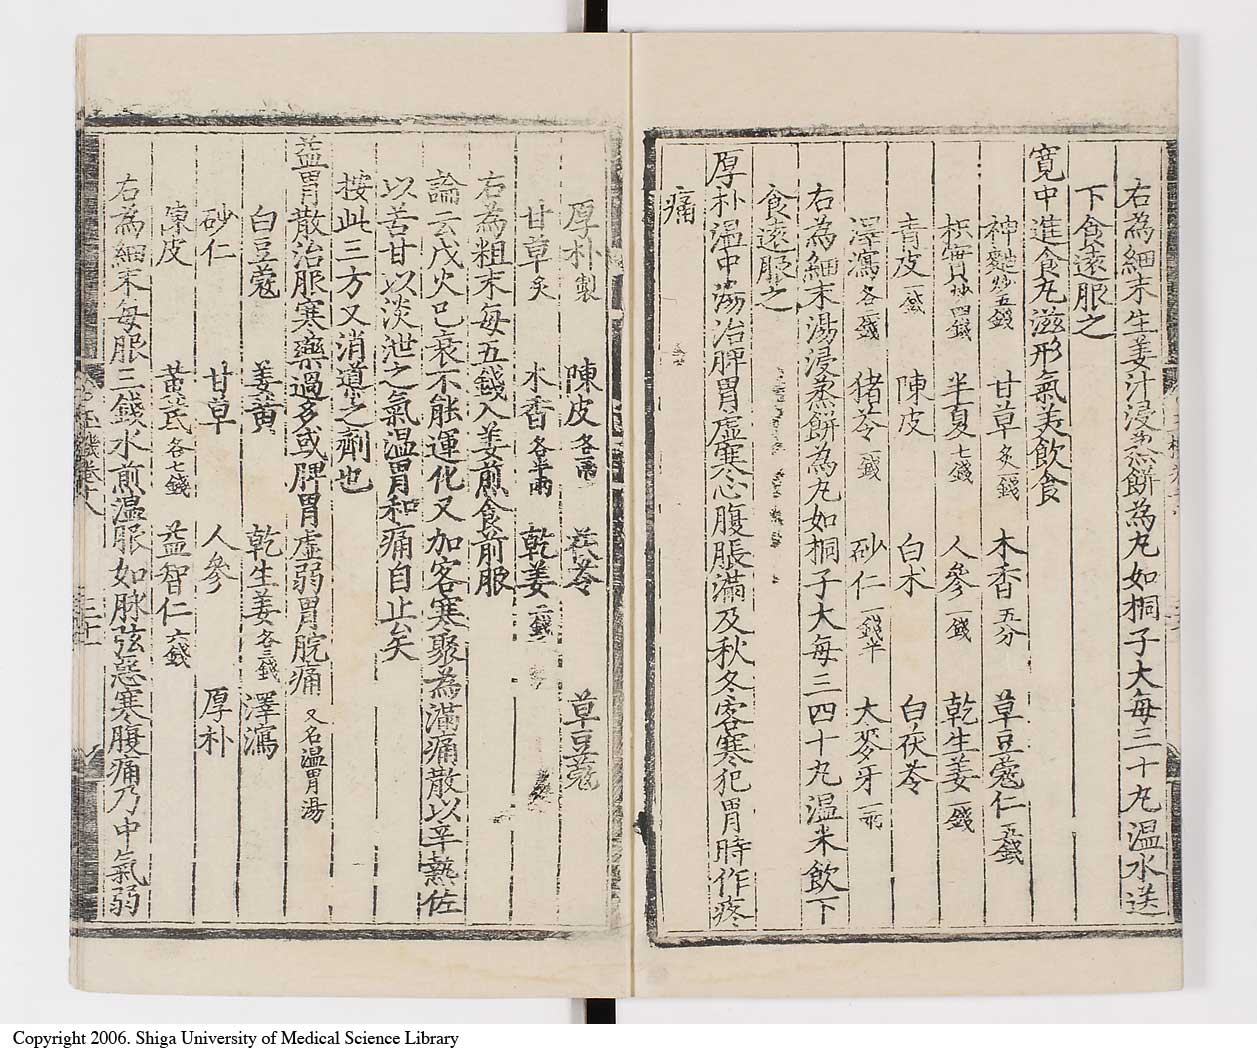 右為細末生姜汁浸蒸餅為丸如桐子大每三十丸温水送
下食遠服之
寛中進食丸滋形氣美飲食
神麯炒五錢 甘草炙一錢 木香五分 草豆蔻仁五錢
枳實炒四錢 半夏七錢 人參一錢 乾生姜一錢
青皮一錢 陳皮 白术 白茯苓
澤瀉各二錢 猪苓一錢 砂仁一錢半 大麥牙一兩
右為細末湯浸蒸餅為丸如桐子大每三四十丸温米飲下
食遠服之
厚朴温中湯治脾胃虛寒心腹脹滿及秋冬客寒犯胃時作疼
痛
厚朴製 陳皮各一兩 茯苓 草豆蔻
甘草炙 木香各半兩 乾姜二錢
右為粗末每五錢入姜煎食前服
論云戊火已衰不能運化又加客寒聚為滿痛散以辛熱佐
以苦甘以淡泄之氣温胃和痛自止矣
按此三方又消導之劑也
益胃散治服寒藥過多或脾胃虛弱胃脘痛又名温胃湯
白豆蔻 姜黄 乾生姜各三錢 澤瀉
砂仁 甘草 人參 厚朴
陳皮 黄芪各七錢 益智仁六錢
右為細末每服三錢水煎温服如脉弦惡寒腹痛乃中氣弱
玉機卷十八 三十一
Copyright 2006. Shiga University of Medical Science Library